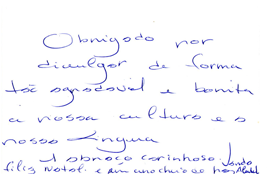 Obrigado por
divulgar de forma
tão agradável e bonita
a nossa cultura e a
nossa língua
1 abraço carinhoso.
feliz Natal e um ano cheio de